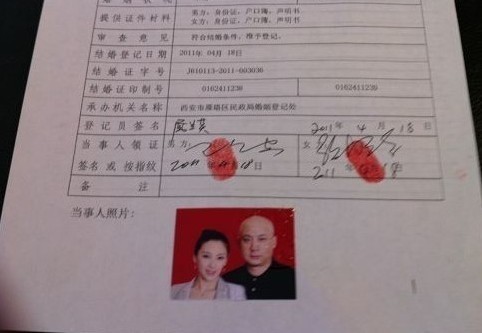 提供证件材料 男方:身份证,户口簿,声明书
女方:身份证,户口簿,声明书
审查意见 符合结婚条件,准予登记。
结婚登记日期 2011年 04月 18日
结婚证字号 J610113-2011-003036
结婚证印制号 0162411239 0162411239
承办机关名称 西安市雁塔区民政局婚姻登记处
登记员签名 2011年 4月 18日
当事人领证 男方: 女
签名或按指纹 2011年 4月 18日 211年 4月 18日
备注
当事人照片: